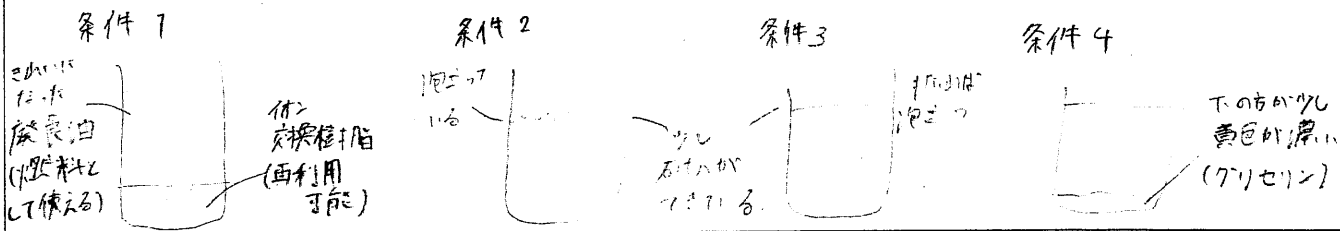 条件 1
きれいに
なった
廃食油
(燃料と
して使える)
イオン
交換樹脂
(再利用
可能)
条件 2
泡立って
いる
少し
石けんが
できている
条件3
すればば
泡立つ
条件 4
下の方が少し
黄色が濃い
(グリセリン)